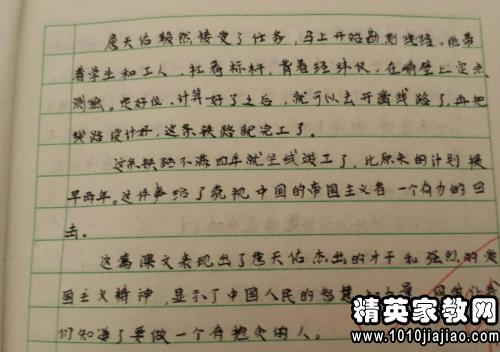 詹天佑毅然接受了任务，马上开始勘测线路。他带
着学生和工人，扛着标杆，背着经纬仪，在峭壁上定点
测绘。定好位、计算好了之后，就可以去开凿线路了，再把
线路设计好，这条铁路就完工了。
这条铁路不满四年就全线竣工了，比原来的计划提
早两年。这件事给了藐视中国的帝国主义者一个有力的回
击。
这篇课文表现出了詹天佑杰出的才干和强烈的爱
国主义精神，显示了中国人民的智慧
们知道了要做一个有抱负的人。
精英家教网
www.1010jiajiao.com